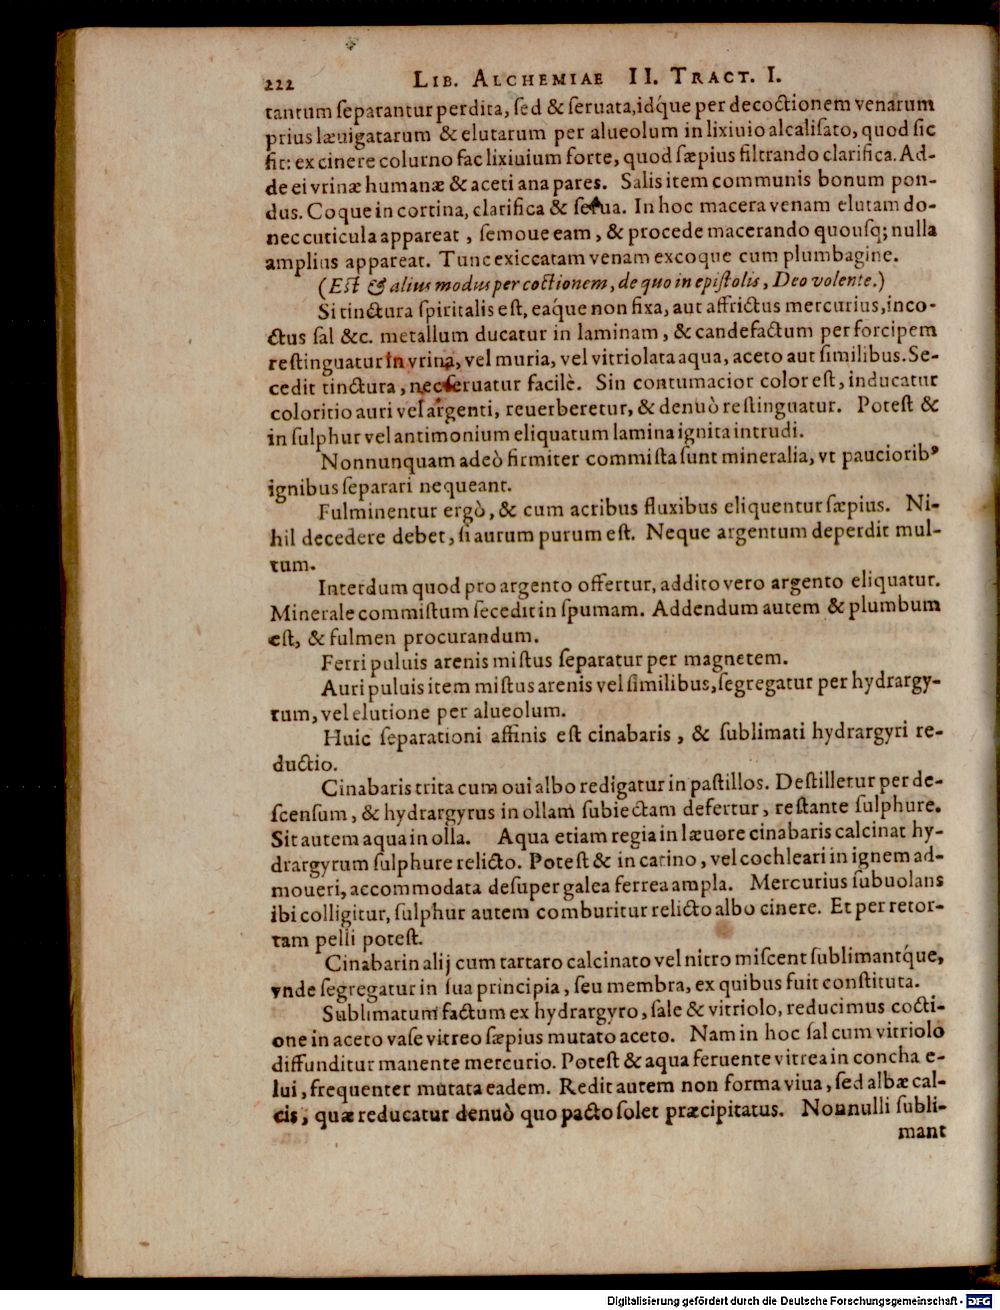 222 LIB. ALCHEMIAE II. TRACT. I.
tantum ſeparantur perdita, ſed & ſeruata, idq́ue per decoctionem venarum
prius læuigatarum & elutarum per alueolum in lixiuio alcaliſato, quod ſic
fit: ex cinere colurno fac lixiuium forte, quod ſæpius filtrando clarifica. Ad-
de ei vrinæ humanæ & aceti ana pares. Salis item communis bonum pon-
dus. Coque in cortina, clarifica & ſerua. In hoc macera venam elutam do-
nec cuticula appareat, ſemoue eam, & procede macerando quouſq; nulla
amplius appareat. Tunc exiccatam venam excoque cum plumbagine.
(Eſt & alius modus per coctionem, de quo in epiſtolis, Deo volente.)
Si tinctura ſpiritalis eſt, eaq́ue non fixa, aut affrictus mercurius, inco-
ctus ſal &c. metallum ducatur in laminam, & candefactum per forcipem
reſtinguatur in vrina, vel muria, vel vitriolata aqua, aceto aut ſimilibus. Se-
cedit tinctura, nec ſeruatur facilè. Sin contumacior color eſt, inducatur
coloritio auri vel argenti, reuerberetur, & denuò reſtinguatur. Poteſt &
in ſulphur vel antimonium eliquatum lamina ignita intrudi.
Nonnunquam adeò firmiter commiſta ſunt mineralia, vt pauciorib⁹
ignibus ſeparari nequeant.
Fulminentur ergò, & cum acribus fluxibus eliquentur ſæpius. Ni-
hil decedere debet, ſi aurum purum eſt. Neque argentum deperdit mul-
tum.
Interdum quod pro argento offertur, addito vero argento eliquatur.
Minerale commiſtum ſecedit in ſpumam. Addendum autem & plumbum
eſt, & fulmen procurandum.
Ferri puluis arenis miſtus ſeparatur per magnetem.
Auri puluis item miſtus arenis vel ſimilibus, ſegregatur per hydrargy-
rum, vel elutione per alueolum.
Huic ſeparationi affinis eſt cinabaris, & ſublimati hydrargyri re-
ductio.
Cinabaris trita cum oui albo redigatur in paſtillos. Deſtilletur per de-
ſcenſum, & hydrargyrus in ollam ſubiectam defertur, reſtante ſulphure.
Sit autem aqua in olla. Aqua etiam regia in læuore cinabaris calcinat hy-
drargyrum ſulphure relicto. Poteſt & in catino, vel cochleari in ignem ad-
moueri, accommodata deſuper galea ferrea ampla. Mercurius ſubuolans
ibi colligitur, ſulphur autem comburitur relicto albo cinere. Et per retor-
tam pelli poteſt.
Cinabarin alij cum tartaro calcinato vel nitro miſcent ſublimantq́ue,
vnde ſegregatur in ſua principia, ſeu membra, ex quibus fuit conſtituta.
Sublimatum factum ex hydrargyro, ſale & vitriolo, reducimus cocti-
one in aceto vaſe vitreo ſæpius mutato aceto. Nam in hoc ſal cum vitriolo
diffunditur manente mercurio. Poteſt & aqua feruente vitrea in concha e-
lui, frequenter mutata eadem. Redit autem non forma viua, ſed albæ cal-
cis, quæ reducatur denuò quo pacto ſolet præcipitatus. Nonnulli ſubli-
mant
Digitalisierung gefördert durch die Deutsche Forschungsgemeinschaft - DFG